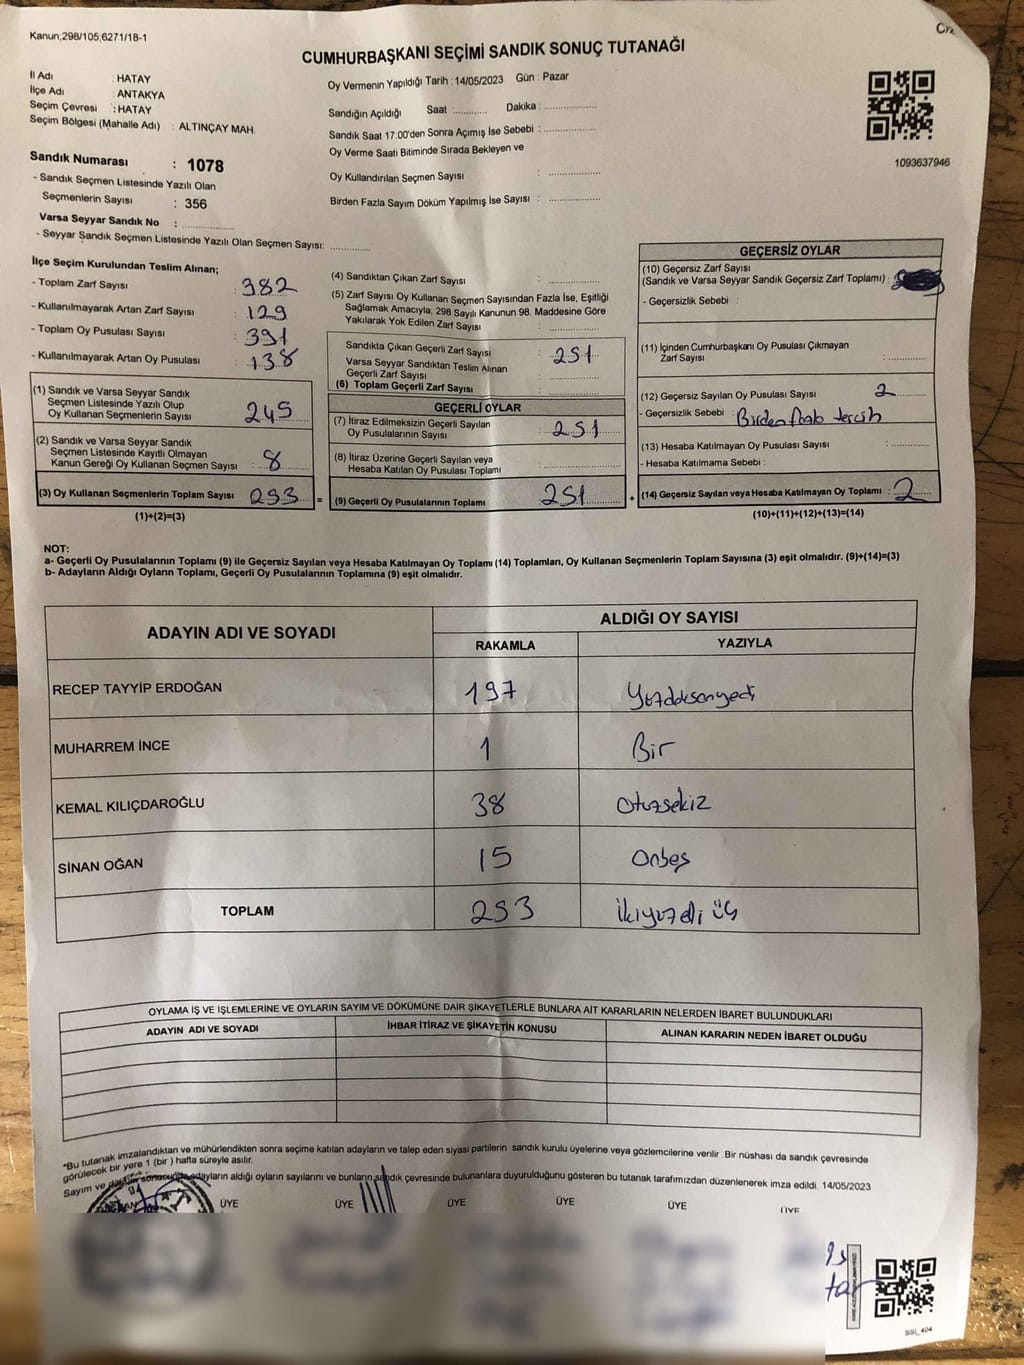 Kanun;298/105,6271/18-1
CUMHURBAŞKANI SEÇİMİ SANDIK SONUÇ TUTANAĞI
İl Adı : HATAY
İlçe Adı : ANTAKYA
Seçim Çevresi : HATAY
Seçim Bölgesi (Mahalle Adı) : ALTINÇAY MAH.
Sandık Numarası : 1078
- Sandık Seçmen Listesinde Yazılı Olan
Seçmenlerin Sayısı : 356
Varsa Seyyar Sandık No :
- Seyyar Sandık Seçmen Listesinde Yazılı Olan Seçmen Sayısı:
Oy Vermenin Yapıldığı Tarih : 14/05/2023 Gün : Pazar
Sandığın Açıldığı Saat : Dakika :
Sandık Saat 17.00'den Sonra Açımış İse Sebebi :
Oy Verme Saati Bitiminde Sırada Bekleyen ve
Oy Kullandırılan Seçmen Sayısı :
Birden Fazla Sayım Döküm Yapılmış İse Sayısı :
1093637946
İlçe Seçim Kurulundan Teslim Alınan;
- Toplam Zarf Sayısı : 382
- Kullanılmayarak Artan Zarf Sayısı : 129
- Toplam Oy Pusulası Sayısı : 391
- Kullanılmayarak Artan Oy Pusulası : 138
(1) Sandık ve Varsa Seyyar Sandık
Seçmen Listesinde Yazılı Olup
Oy Kullanan Seçmenlerin Sayısı : 245
(2) Sandık ve Varsa Seyyar Sandık
Seçmen Listesinde Kayıtlı Olmayan
Kanun Gereği Oy Kullanan Seçmen Sayısı : 8
(3) Oy Kullanan Seçmenlerin Toplam Sayısı 253 =
(1)+(2)=(3)
(4) Sandıktan Çıkan Zarf Sayısı :
(5) Zarf Sayısı Oy Kullanan Seçmen Sayısından Fazla İse, Eşitliği
Sağlamak Amacıyla, 298 Sayılı Kanunun 98. Maddesine Göre
Yakılarak Yok Edilen Zarf Sayısı :
Sandıkta Çıkan Geçerli Zarf Sayısı : 251
Varsa Seyyar Sandıktan Teslim Alınan
Geçerli Zarf Sayısı :
(6) Toplam Geçerli Zarf Sayısı :
GEÇERLİ OYLAR
(7) İtiraz Edilmeksizin Geçerli Sayılan
Oy Pusulalarının Sayısı : 251
(8) İtiraz Üzerine Geçerli Sayılan veya
Hesaba Katılan Oy Pusulası Toplamı :
(9) Geçerli Oy Pusulalarının Toplamı 251 +
GEÇERSİZ OYLAR
(10) Geçersiz Zarf Sayısı
(Sandık ve Varsa Seyyar Sandık Geçersiz Zarf Toplamı) :
- Geçersizlik Sebebi :
(11) İçinden Cumhurbaşkanı Oy Pusulası Çıkmayan
Zarf Sayısı :
(12) Geçersiz Sayılan Oy Pusulası Sayısı : 2
- Geçersizlik Sebebi : Birden fazla tercih
(13) Hesaba Katılmayan Oy Pusulası Sayısı :
- Hesaba Katılmama Sebebi :
(14) Geçersiz Sayılan veya Hesaba Katılmayan Oy Toplamı : 2
(10)+(11)+(12)+(13)=(14)
NOT:
a- Geçerli Oy Pusulalarının Toplamı (9) ile Geçersiz Sayılan veya Hesaba Katılmayan Oy Toplamı (14) Toplamları, Oy Kullanan Seçmenlerin Toplam Sayısına (3) eşit olmalıdır. (9)+(14)=(3)
b- Adayların Aldığı Oyların Toplamı, Geçerli Oy Pusulalarının Toplamına (9) eşit olmalıdır.
ADAYIN ADI VE SOYADI ALDIĞI OY SAYISI
RAKAMLA YAZIYLA
RECEP TAYYİP ERDOĞAN 197 Yüzdoksanyedi
MUHARREM İNCE 1 Bir
KEMAL KILIÇDAROĞLU 38 Otuzsekiz
SİNAN OĞAN 15 Onbeş
TOPLAM 253 İkiyüzelli üç
OYLAMA İŞ VE İŞLEMLERİNE VE OYLARIN SAYIM VE DÖKÜMÜNE DAİR ŞİKAYETLERLE BUNLARA AİT KARARLARIN NELERDEN İBARET BULUNDUKLARI
ADAYIN ADI VE SOYADI İHBAR İTİRAZ VE ŞİKAYETİN KONUSU ALINAN KARARIN NEDEN İBARET OLDUĞU
*Bu tutanak imzalandıktan ve mühürlendikten sonra seçime katılan adayların ve talep eden siyasi partilerin sandık kurulu üyelerine veya gözlemcilerine verilir .Bir nüshası da sandık çevresinde
görülecek bir yere 1 (bir ) hafta süreyle asılır.
Sayım ve döküm sonucunda adayların aldığı oyların sayılarını ve bunların sandık çevresinde bulunanlara duyurulduğunu gösteren bu tutanak tarafımızdan düzenlenerek imza edildi. 14/05/2023
ÜYE ÜYE ÜYE ÜYE ÜYE ÜYE
SSL_404